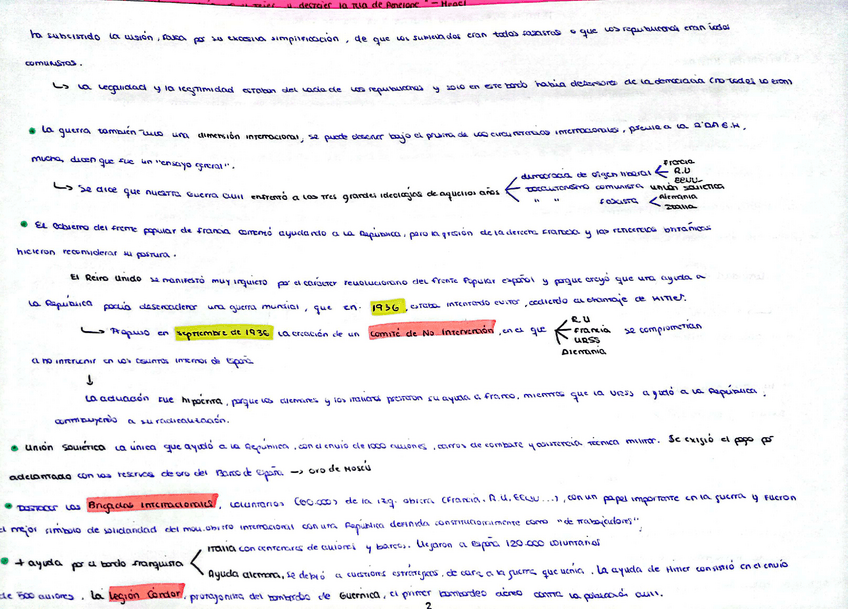 y destrozar la vida de
ha subsistido la visión, falsa por su excesiva simplificación, de que los sublevados eran todos fascistas o que los republicanos eran todos
comunistas.
↳ La legalidad y la legitimidad estaban del lado de los republicanos y solo en este bando había defensores de la democracia (no todos lo eran)
• La guerra también tuvo una dimensión internacional, se puede observar bajo el prisma de las circunstancias internacionales, previa a la
muchos dicen que fue un "ensayo general".
↳ Se dice que nuestra Guerra Civil enfrentó a las tres grandes ideologías de aquellos años < democracia de origen liberal < Francia
R.U
EEUU
totalitarismo comunista Unión Soviética
" " fascista < Alemania
Italia
• El Gobierno del frente popular de Francia comenzó ayudando a la República, pero la presión de la derecha francesa y las británicos
hicieron reconsiderar su postura.
El Reino Unido se manifestó muy inquieto por el carácter revolucionario del Frente Popular español y porque creyó que una ayuda a
la República podía desencadenar una guerra mundial, que en 1936, estaba intentando evitar, cediendo al chantaje de Hitler.
↳ Propuso en septiembre de 1936 la creación de un Comité de No Intervención, en el que < R.U
Francia
URSS
Alemania
se comprometían
a no intervenir en los asuntos internos de España
↓
La actuación fue hipócrita, porque los alemanes y los italianos prestaron su ayuda a Franco, mientras que la URSS ayudó a la República,
contribuyendo a su radicalización.
• Unión Soviética la única que ayudó a la República, con el envío de 1000 aviones, carros de combate y asistencia técnica militar. Se exigió el pago por
adelantado con las reservas de oro del Banco de España → oro de Moscú
• Destacar las Brigadas Internacionales, voluntarios (60.000) de la izq. obrera (Francia, R.U, EEUU...), con un papel importante en la guerra y fueron
el mejor símbolo de solidaridad del mov. obrero internacional con una República definida constitucionalmente como "de trabajadores".
• + ayuda por el bando franquista < Italia con centenares de aviones y barcos. Llegaron a España 120.000 voluntarios
Ayuda alemana, se debió a cuestiones estratégicas, de cara a la guerra que venía. La ayuda de Hitler consistió en el envío
de 500 aviones. La Legión Cóndor, protagonista del bombardeo de Guernica, el primer bombardeo aéreo contra la población civil.
2